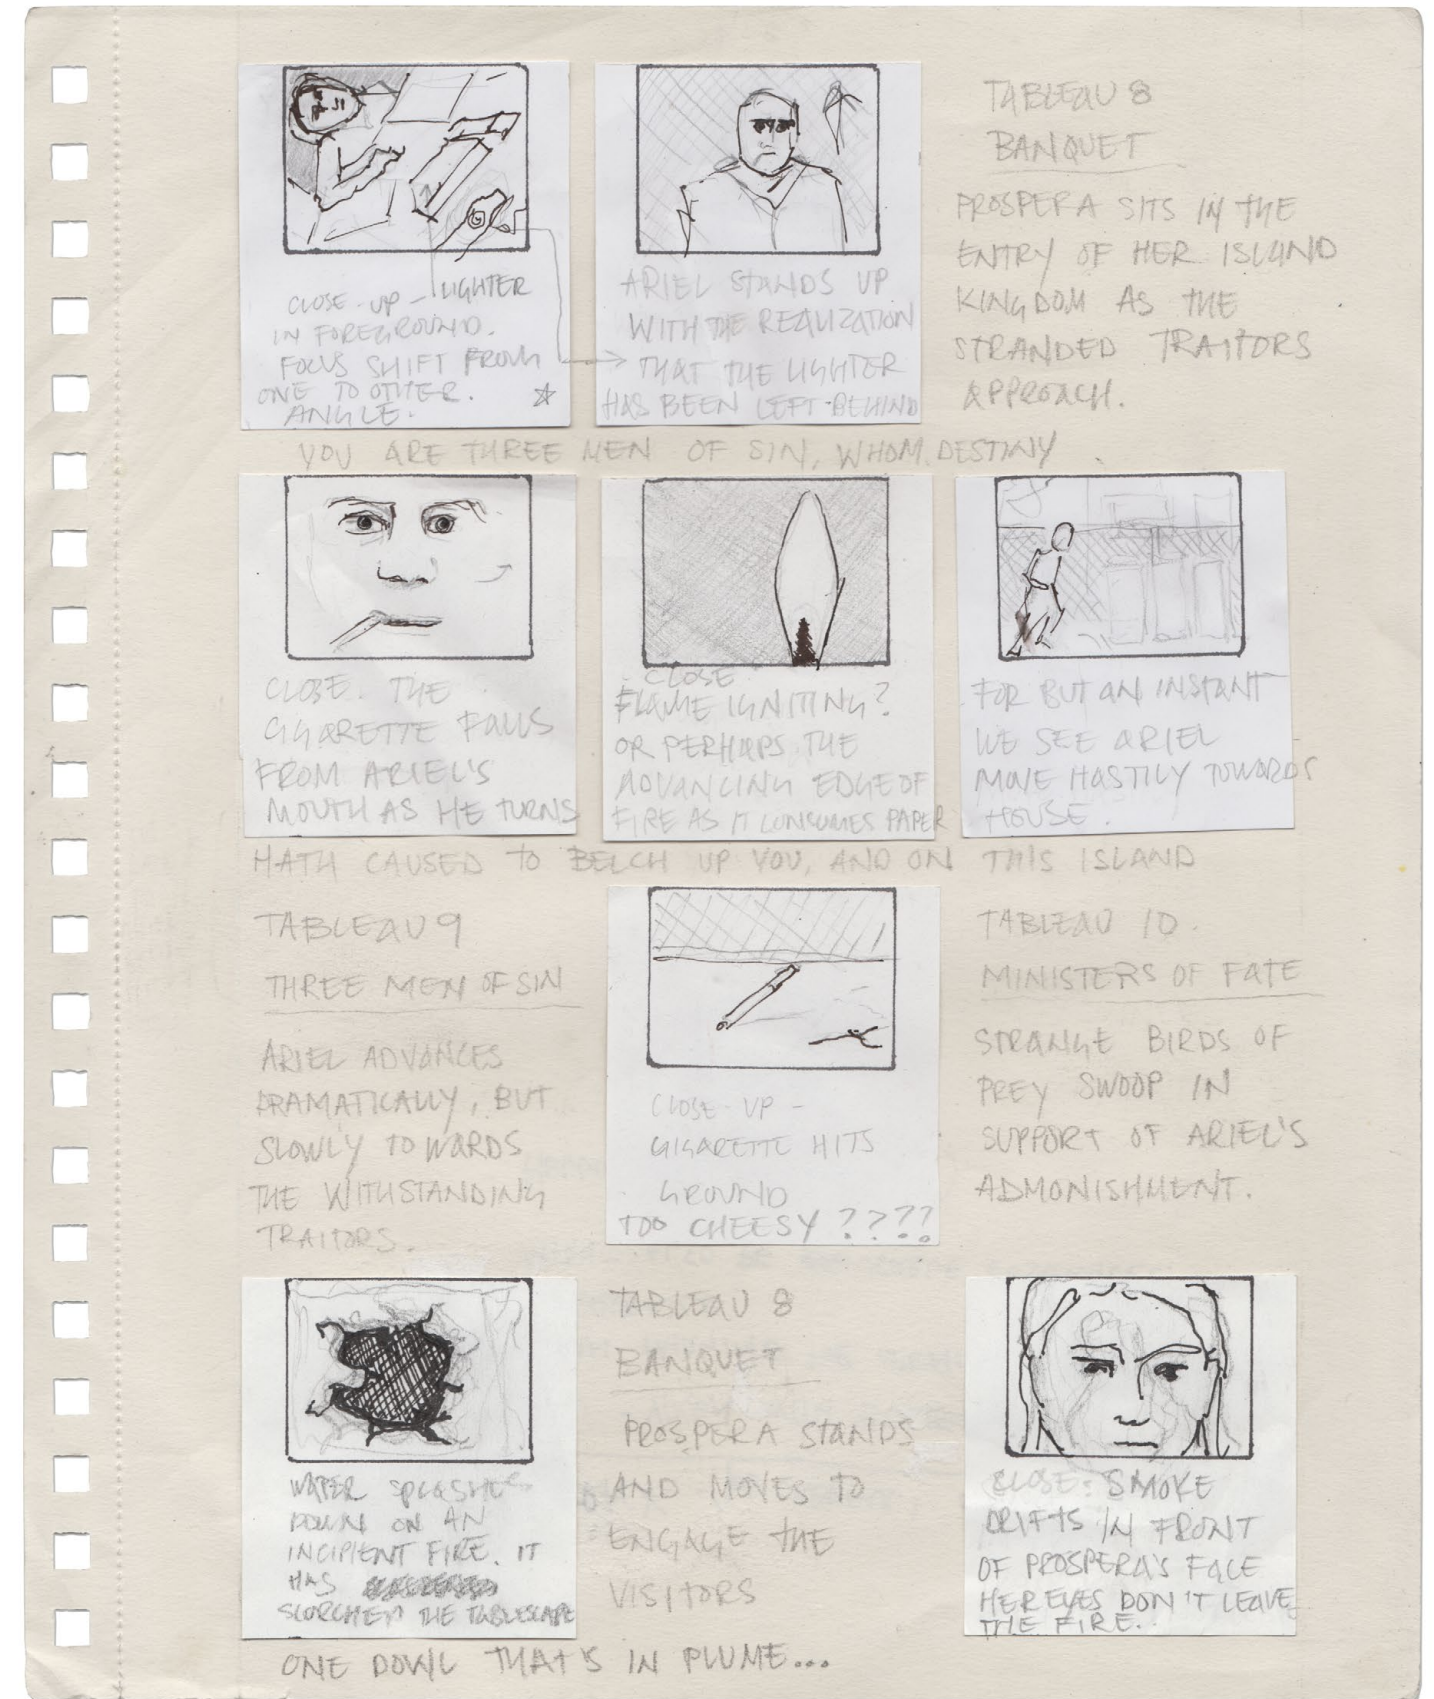 CLOSE-UP - LIGHTER
IN FOREGROUND.
FOCUS SHIFT FROM
ONE TO OTHER.
ANGLE.
ARIEL STANDS UP
WITH THE REALIZATION
THAT THE LIGHTER
HAS BEEN LEFT BEHIND
TABLEAU 8
BANQUET
PROSPERA SITS IN THE
ENTRY OF HER ISLAND
KINGDOM AS THE
STRANDED TRAITORS
APPROACH.
YOU ARE THREE MEN OF SIN, WHOM DESTINY
CLOSE. THE
CIGARETTE FALLS
FROM ARIEL'S
MOUTH AS HE TURNS
CLOSE
FLAME IGNITING?
OR PERHAPS THE
ADVANCING EDGE OF
FIRE AS IT CONSUMES PAPER
FOR BUT AN INSTANT
WE SEE ARIEL
MOVE HASTILY TOWARDS
HOUSE.
HATH CAUSED TO BELCH UP YOU, AND ON THIS ISLAND
TABLEAU 9
THREE MEN OF SIN
ARIEL ADVANCES
DRAMATICALLY, BUT
SLOWLY TOWARDS
THE WITHSTANDING
TRAITORS.
CLOSE-UP -
CIGARETTE HITS
GROUND
TOO CHEESY ????
TABLEAU 10.
MINISTERS OF FATE
STRANGE BIRDS OF
PREY SWOOP IN
SUPPORT OF ARIEL'S
ADMONISHMENT.
WATER SPLASHES
DOWN ON AN
INCIPIENT FIRE. IT
HAS
SCORCHED THE TABLESCAPE
TABLEAU 8
BANQUET
PROSPERA STANDS
AND MOVES TO
ENGAGE THE
VISITORS
CLOSE: SMOKE
DRIFTS IN FRONT
OF PROSPERA'S FACE
HER EYES DON'T LEAVE
THE FIRE..
ONE DOWL THAT'S IN PLUME...